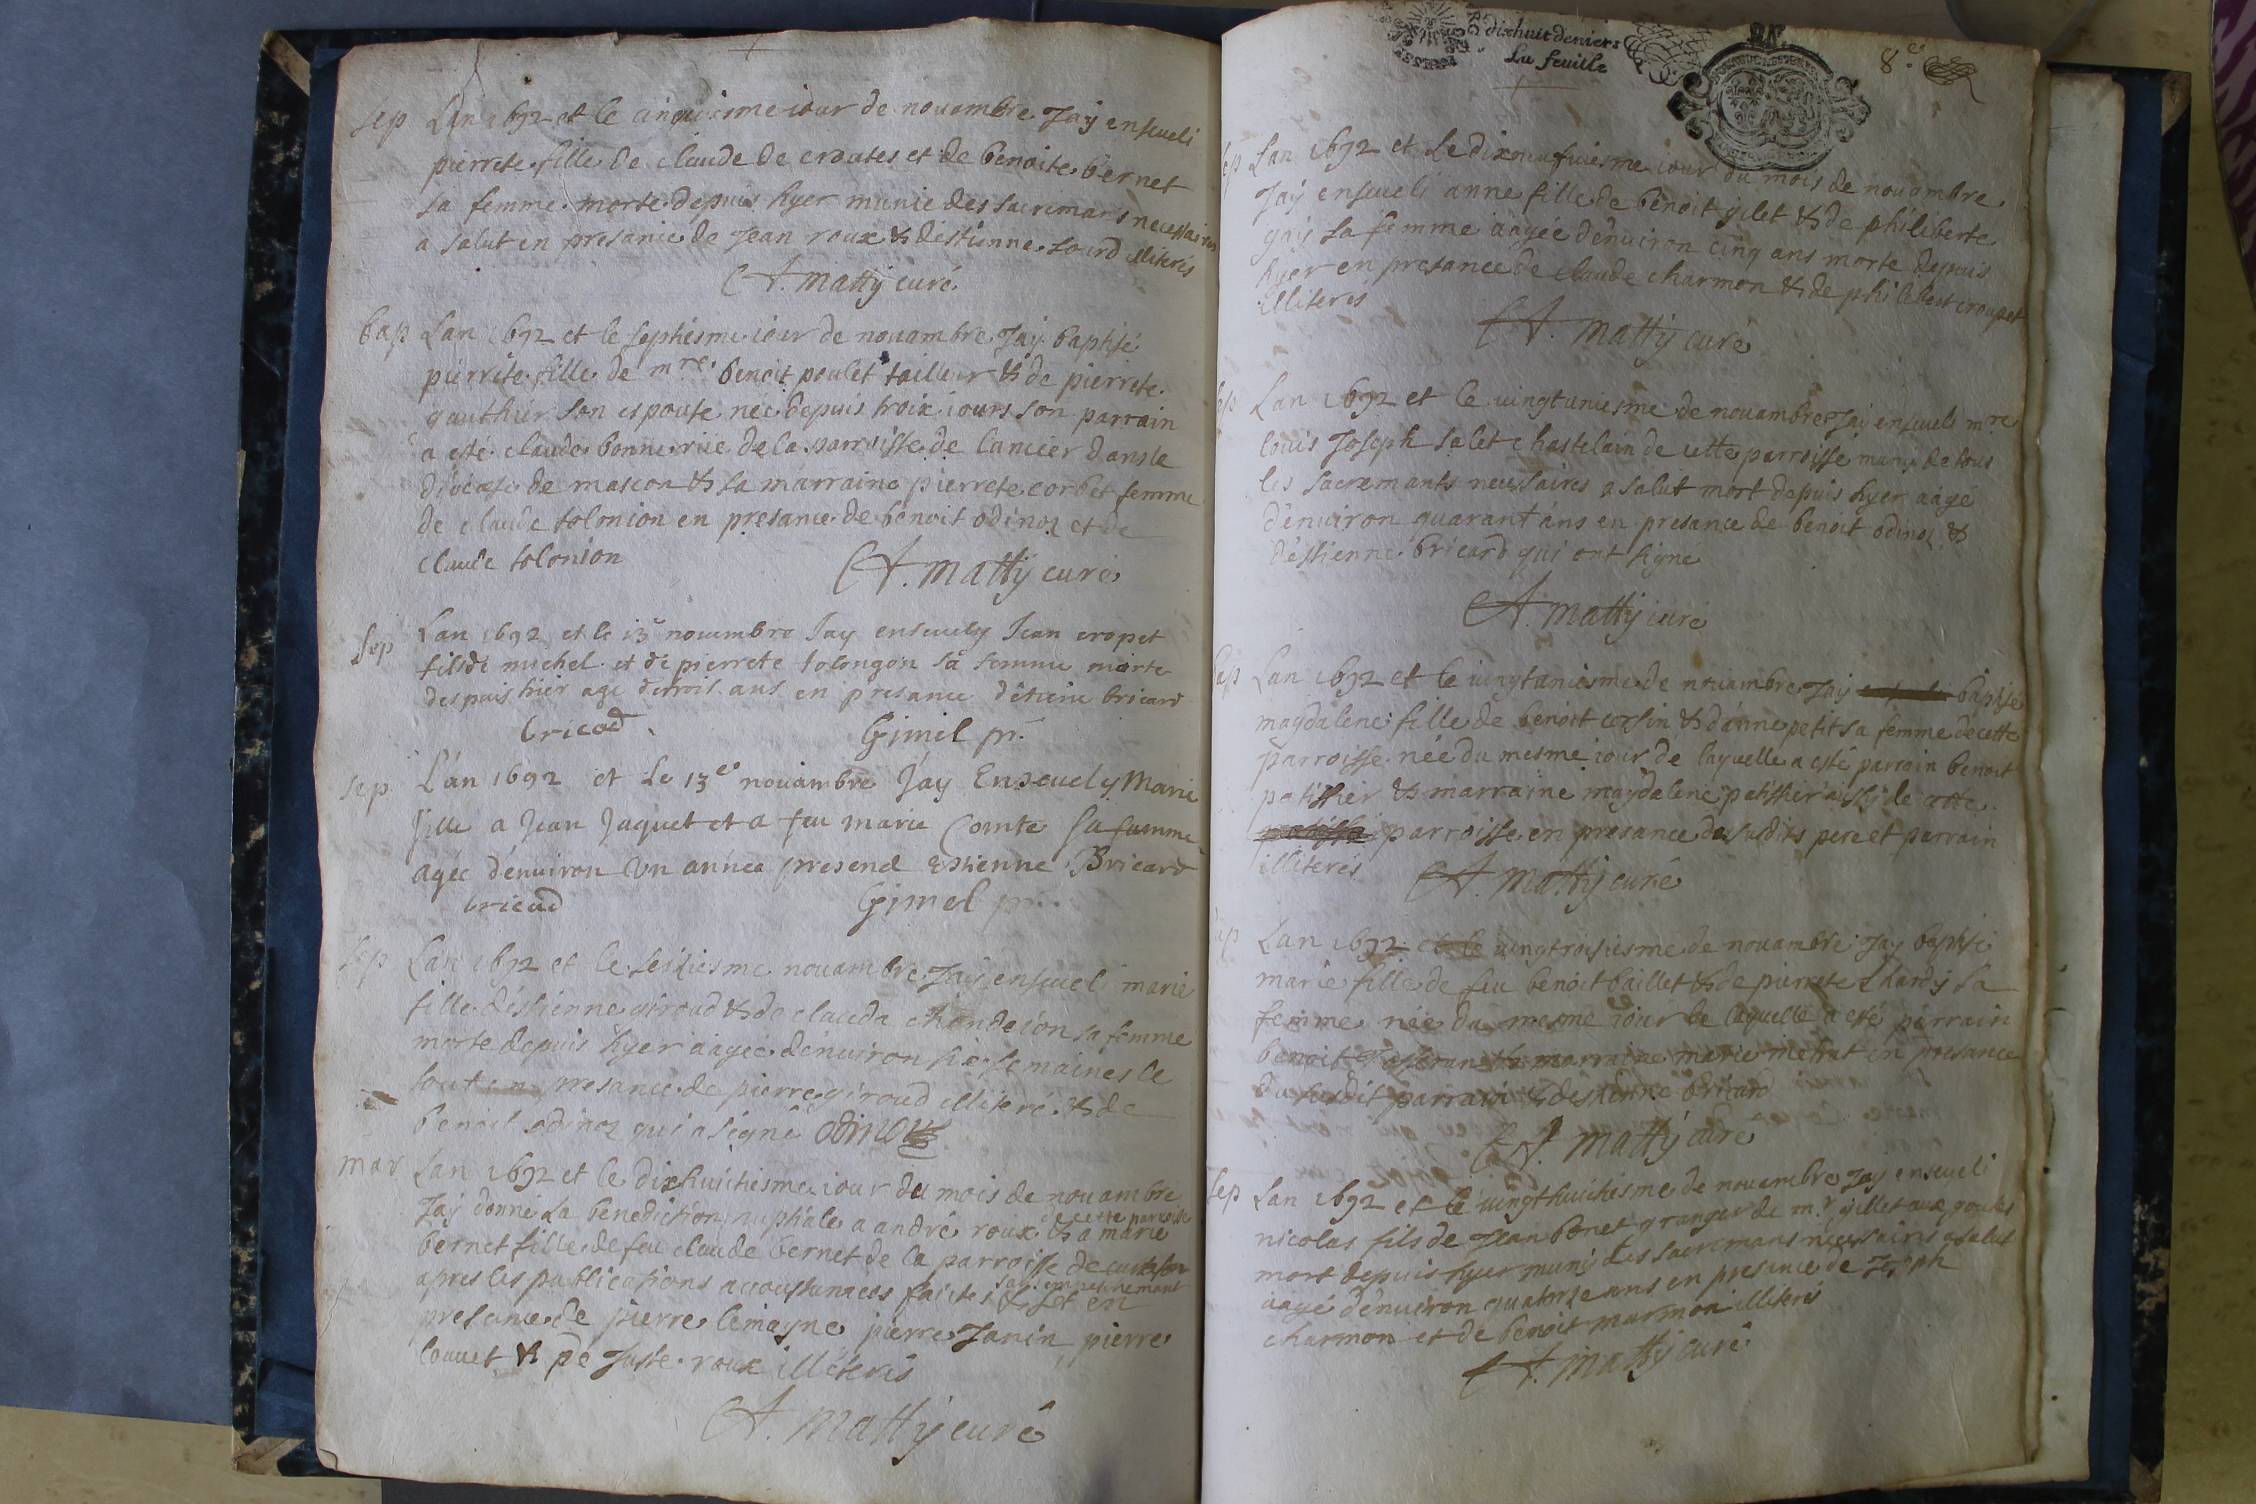 sep Lan 1692 et le cinquiesme iour de nouambre Jay enseueli
pierrete fille de claude de croates et de benoite bernet
sa femme morte depuis hyer munie des sacremans necessaires
a salut en presance de Jean roux & destienne sourd illiterés
A. Matty curé
bap Lan 1692 et le septiesme iour de nouambre Jay baptisé
pierrete fille de mre benoit poulet tailleur & de pierrete
gauthier son espouse née depuis troix iours son parrain
a esté claude bonnerüe de la parroisse de lancier dans le
diocese de mascon & sa marraine pierrete corbet femme
de claude tolonion en presance de benoit odinoz et de
claude tolonion
A. Matty curé
sep Lan 1692 et le 13e nouembre Jay enseuely Jean cropet
fils de michel et de pierrete tolongon sa femme morte
despuis hier age de trois ans en presance d'etiene bricard
bricad Gimel pr.
sep L'an 1692 et Le 13e nouambre J'ay Enseuely Marie
fille a Jean Jaquet et a feu marie Comte sa famme
agée d'enuiron Vn année presend Estienne Bricard
bricad Gimel pr.
sep Lan 1692 et le seiziesme nouambre Jay enseueli marie
fille d'estienne giroud & de clauda chandeion sa femme
morte depuis hyer aagée denuiron six semaines le
tout en presance de pierre giroud illiteré & de
benoit odinoz qui a signé odinoz
mar Lan 1692 et le dixhuictiesme iour du mois de nouambre
Jay donné La benediction nuptiale a andré roux de cette parroisse & a marie
bernet fille de feu claude bernet de la parroisse de
apres les publications accoustumées faictes sans empeschemant & et en
presance de pierre lemayne pierre Janin pierre
louuet & de Juste roux illiterés
A. Matty curé
dixhuit deniers
La feuille
8e
sep Lan 1692 et Le dixneufuiesme iour du mois de nouambre
Jay enseueli anne fille de benoit gilet & de philiberte
gay sa femme aagée d'enuiron cinq ans morte depuis
hyer en presance de claude charmon & de philibert croupet
illiterés
A. Matty curé
sep Lan 1692 et le uingtuniesme de nouambre Jay enseueli mre
louis Joseph salet chastelain de cette parroisse muny de tous
les sacremants necessaires a salut mort depuis hyer aagé
d'enuiron quarant ans en presance de benoit odinoz &
d'estienne bricard qui ont signe
A. Matty curé
bap Lan 1692 et le uingtuniesme de nouambre Jay baptisé
magdalene fille de benoit corsin & d'anne petit sa femme de cette
parroisse née du mesme iour de laquelle a esté parrain benoit
patissier & marraine magdalene patissier aussy de cette
parroisse en presance des susdits pere et parrain
illiterés
A. Matty curé
bap Lan 1692 et le uingtroisiesme de nouambre Jay baptisé
marie fille de feu benoit baillet & de pierrete Lhardy sa
femme née du mesme iour de laquelle a esté parrain
benoit & marraine marie en presance
du susdit parrain & destienne bricard
A. Matty curé
sep Lan 1692 et le uingthuictiesme de nouambre Jay enseueli
nicolas fils de Jean bonet granger de mr gillet aux
mort depuis hyer muny des sacremans necessaires a salut
aagé d'enuiron quatorze ans en presence de Joseph
charmon et de benoit marmon illiterés
A. Matty curé